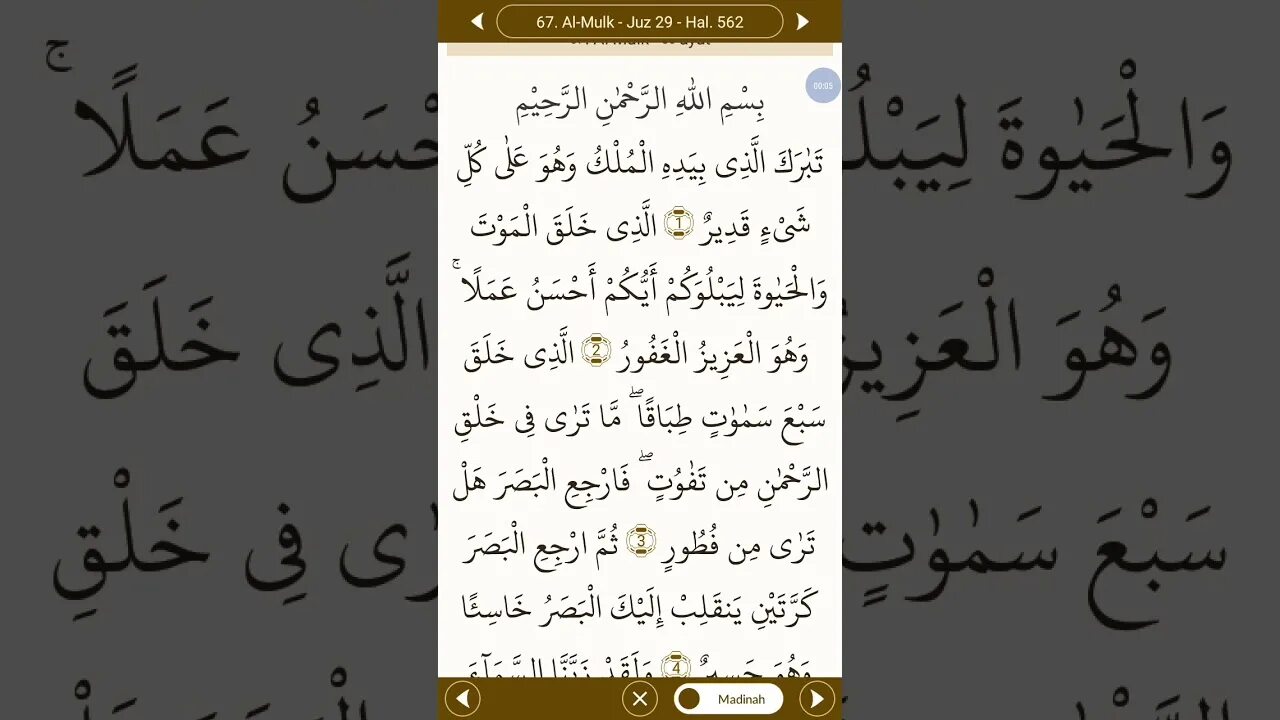 67. Al-Mulk - Juz 29 - Hal. 562
00:05
بِسْمِ اللهِ الرَّحْمٰنِ الرَّحِيْمِ
تَبٰرَكَ الَّذِى بِيَدِهِ الْمُلْكُ وَهُوَ عَلٰى كُلِّ
شَىْءٍ قَدِيرٌ 1 الَّذِى خَلَقَ الْمَوْتَ
وَالْحَيٰوةَ لِيَبْلُوَكُمْ أَيُّكُمْ أَحْسَنُ عَمَلًا ۚ
وَهُوَ الْعَزِيزُ الْغَفُورُ 2 الَّذِى خَلَقَ
سَبْعَ سَمٰوٰتٍ طِبَاقًا ۖ مَّا تَرٰى فِى خَلْقِ
الرَّحْمٰنِ مِن تَفٰوُتٍ ۖ فَارْجِعِ الْبَصَرَ هَلْ
تَرٰى مِن فُطُورٍ 3 ثُمَّ ارْجِعِ الْبَصَرَ
كَرَّتَيْنِ يَنقَلِبْ إِلَيْكَ الْبَصَرُ خَاسِئًا
وَهُوَ حَسِيرٌ 4 وَلَقَدْ زَيَّنَّا السَّمَآءَ
Madinah